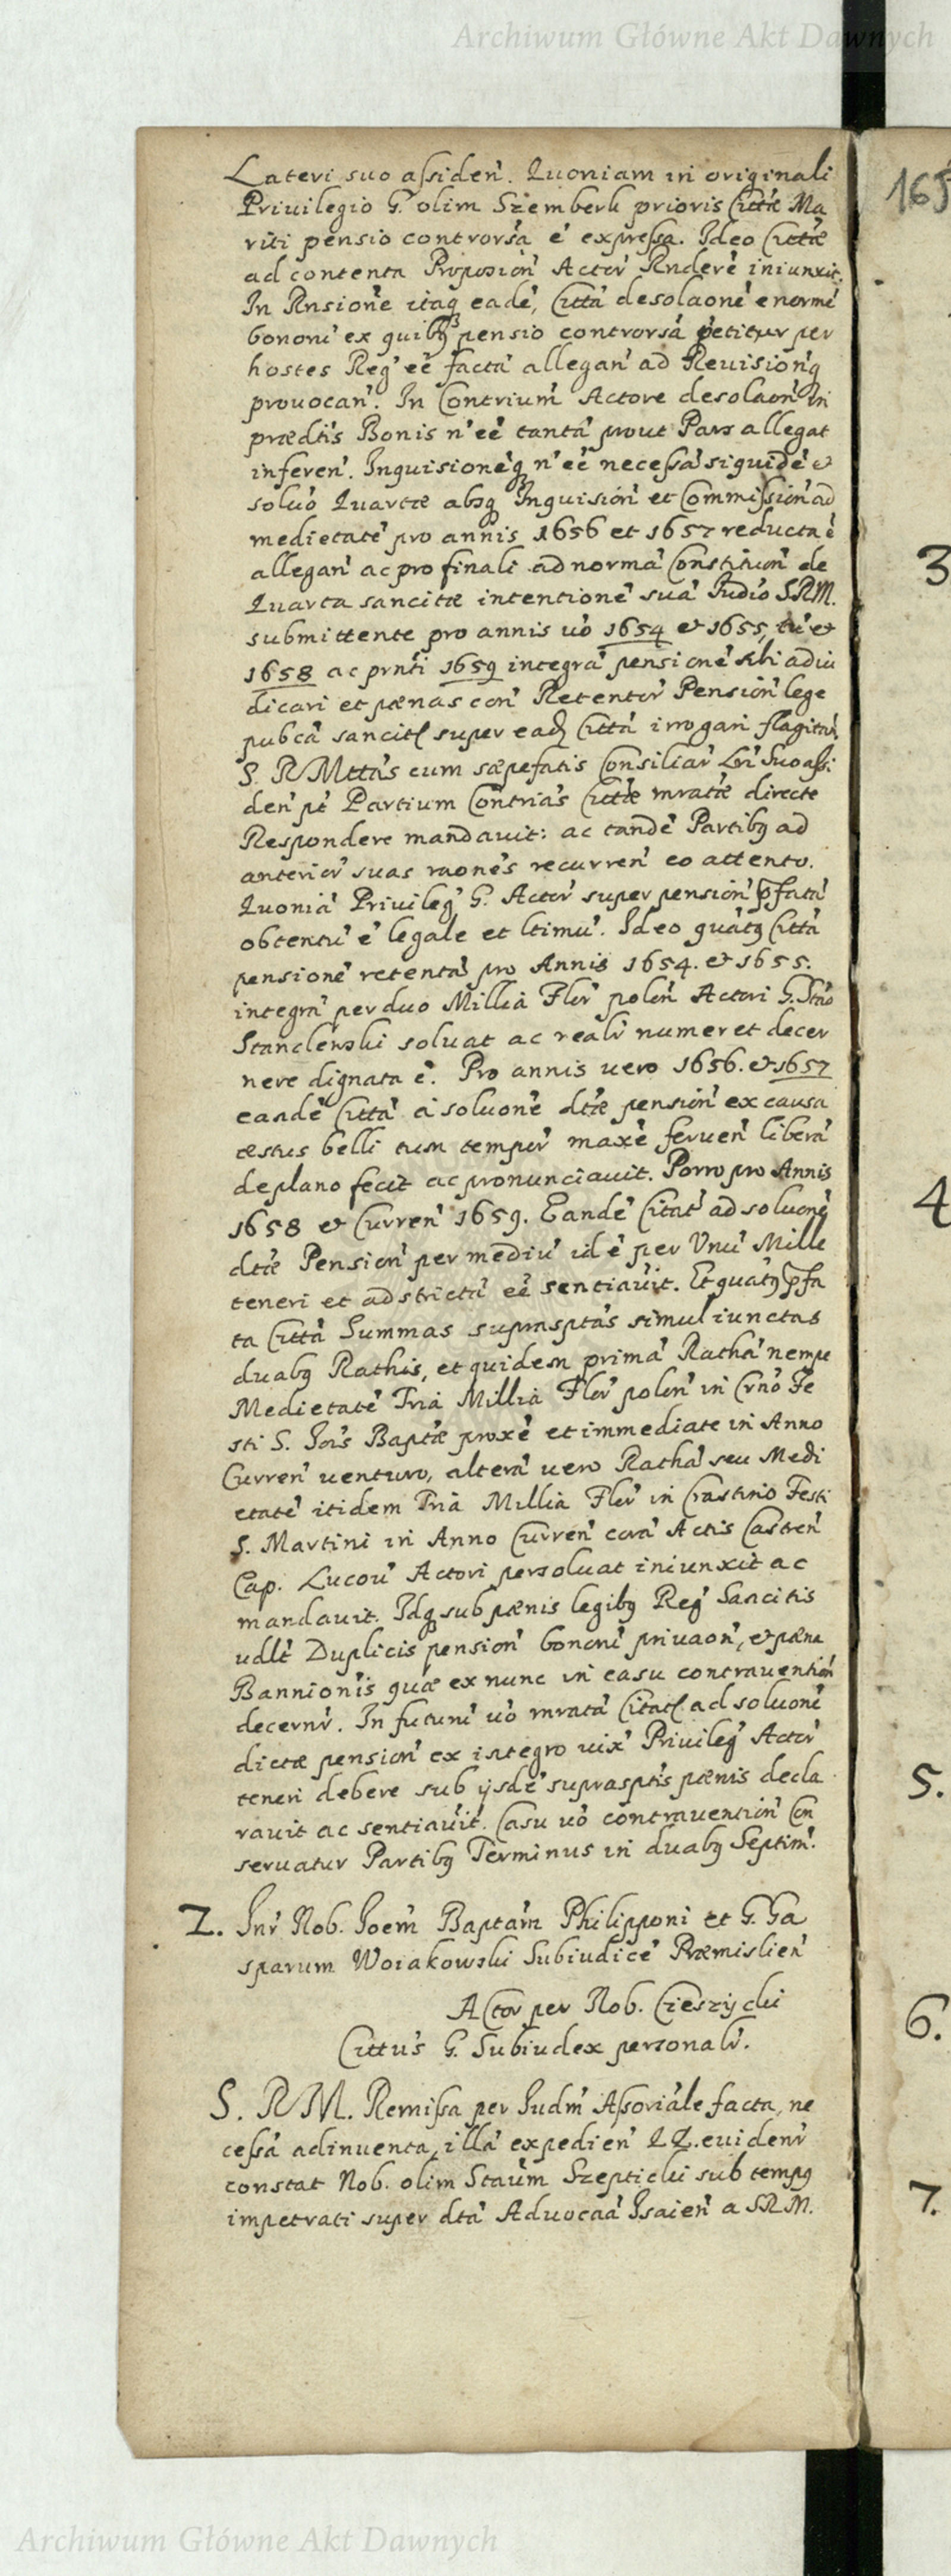 Archiwum Główne Akt Dawnych
Lateri suo assiden̄. Quoniam in originali
Priuilegio G. olim Szembek prioris Cittæ Ma
riti pensio controrsa ē expressa. Ideo Cittæ
ad contenta Proposiōn̄ Actor Rnderē iniunxit.
In Rnsionē itaq eadē, Citta desolaonē enormē
bonorū ex quibq pensio controrsa petitur per
hostes Reg' eē facta allegan̄ ad Reuisionq
prouocan̄. In Contrium̄ Actore desolaon̄ in
prædtis Bonis n' eē tantā prout Pars allegat
inferen̄. Inquisionēq n' eē necessā siquidē et
soluō Quartæ absq Inquisiōn̄ et Commissiōn̄ ad
medietatē pro annis 1656 et 1657 reducta ē
allegan̄ ac pro finali ad normā Constituōn̄ de
Quarta sancitæ intentionē suā Iudio SRM.
submittente pro annis uō 1654 et 1655, tū et
1658 ac prnti 1659 integrā pensionē sibi adiu
dicari et pænas con̄ Retentor̄ Pensiōn̄ lege
pubcā sancit super ead Cittā irrogari flagitan̄
S. R Mttas cum sæpefatis Consiliar̄ Lri Suo assi
den̄ pt Partium Contrias Cittæ mratæ directe
Respondere mandauit: ac tandē Partibq ad
anterior̄ suas raones recurren̄ eo attento.
Quoniā Priuileg' G. Actor̄ super pensiōn̄ pfatā
obtentū ē legale et ltimū. Ideo quatq Citta
pensionē retentā pro Annis 1654. et 1655.
integrā per duo Millia Flor̄ polōn̄ Actori G. Stão
Stanclewski soluat ac realr̄ numeret decer
nere dignata ē. Pro annis vero 1656. et 1657
eandē Cittā à soluonē dtæ pensiōn̄ ex causa
æstus belli tum tempor̄ maxē feruen̄ liberā
de plano fecit ac pronunciauit. Porro pro Annis
1658 et Curren̄ 1659. Eandē Citat' ad soluonē
dtæ Pensiōn̄ per mediū idē per Vnū Mille
teneri et adstrictā eē sentiauit. Et quatq pfa
ta Citta Summas suprasptas simul iunctas
duabq Rathis, et quidem primā Rathā nempe
Medietatē Tria Millia Flor̄ polōn̄ in Crnō Fe
sti S. Iois Baptæ proxē et immediate in Anno
Curren̄ venturo, alterā uero Rathā seu Medi
etatē itidem Tria Millia Flor̄ in Crastino Festi
S. Martini in Anno Curren̄ corā Actis Castren̄
Cap. Lucou' Actori persoluat iniunxit ac
mandauit. Idq sub pænis legibq Reg' Sancitis
udlt Duplicis pensiōn̄ bonorū priuaōn̄, et pæna
Bannionis quæ ex nunc in casu contrauentiōn̄
decernr̄. In futurū uō mratā Citat ad soluonē
dictæ pensiōn̄ ex integro uix' Priuileg' Actor̄
teneri debere sub ijsdē suprasptis pænis decla
rauit ac sentiauit. Casu uō contrauentiōn̄ Con
seruatur Partibq Terminus in duabq Septim̄.
2. Inr̄ Nob. Ioem̄ Baptam̄ Philipponi et G. Ga
sparum Woiakowski Subiudicē Præmislien̄
Actor per Nob. Cieszycki
Cittus G. Subiudex personalr̄.
S. R M. Remissa per Iudm̄ Assoriale facta, ne
cessā adinuenta, illā expedien̄ QZ. euidenr̄
constat Nob. olim Staūm Szepticki sub tempq
impetrati super dtā Aduocaā Isaien̄ a SRM.
165
3
4
5.
6.
7.
Archiwum Główne Akt Dawnych